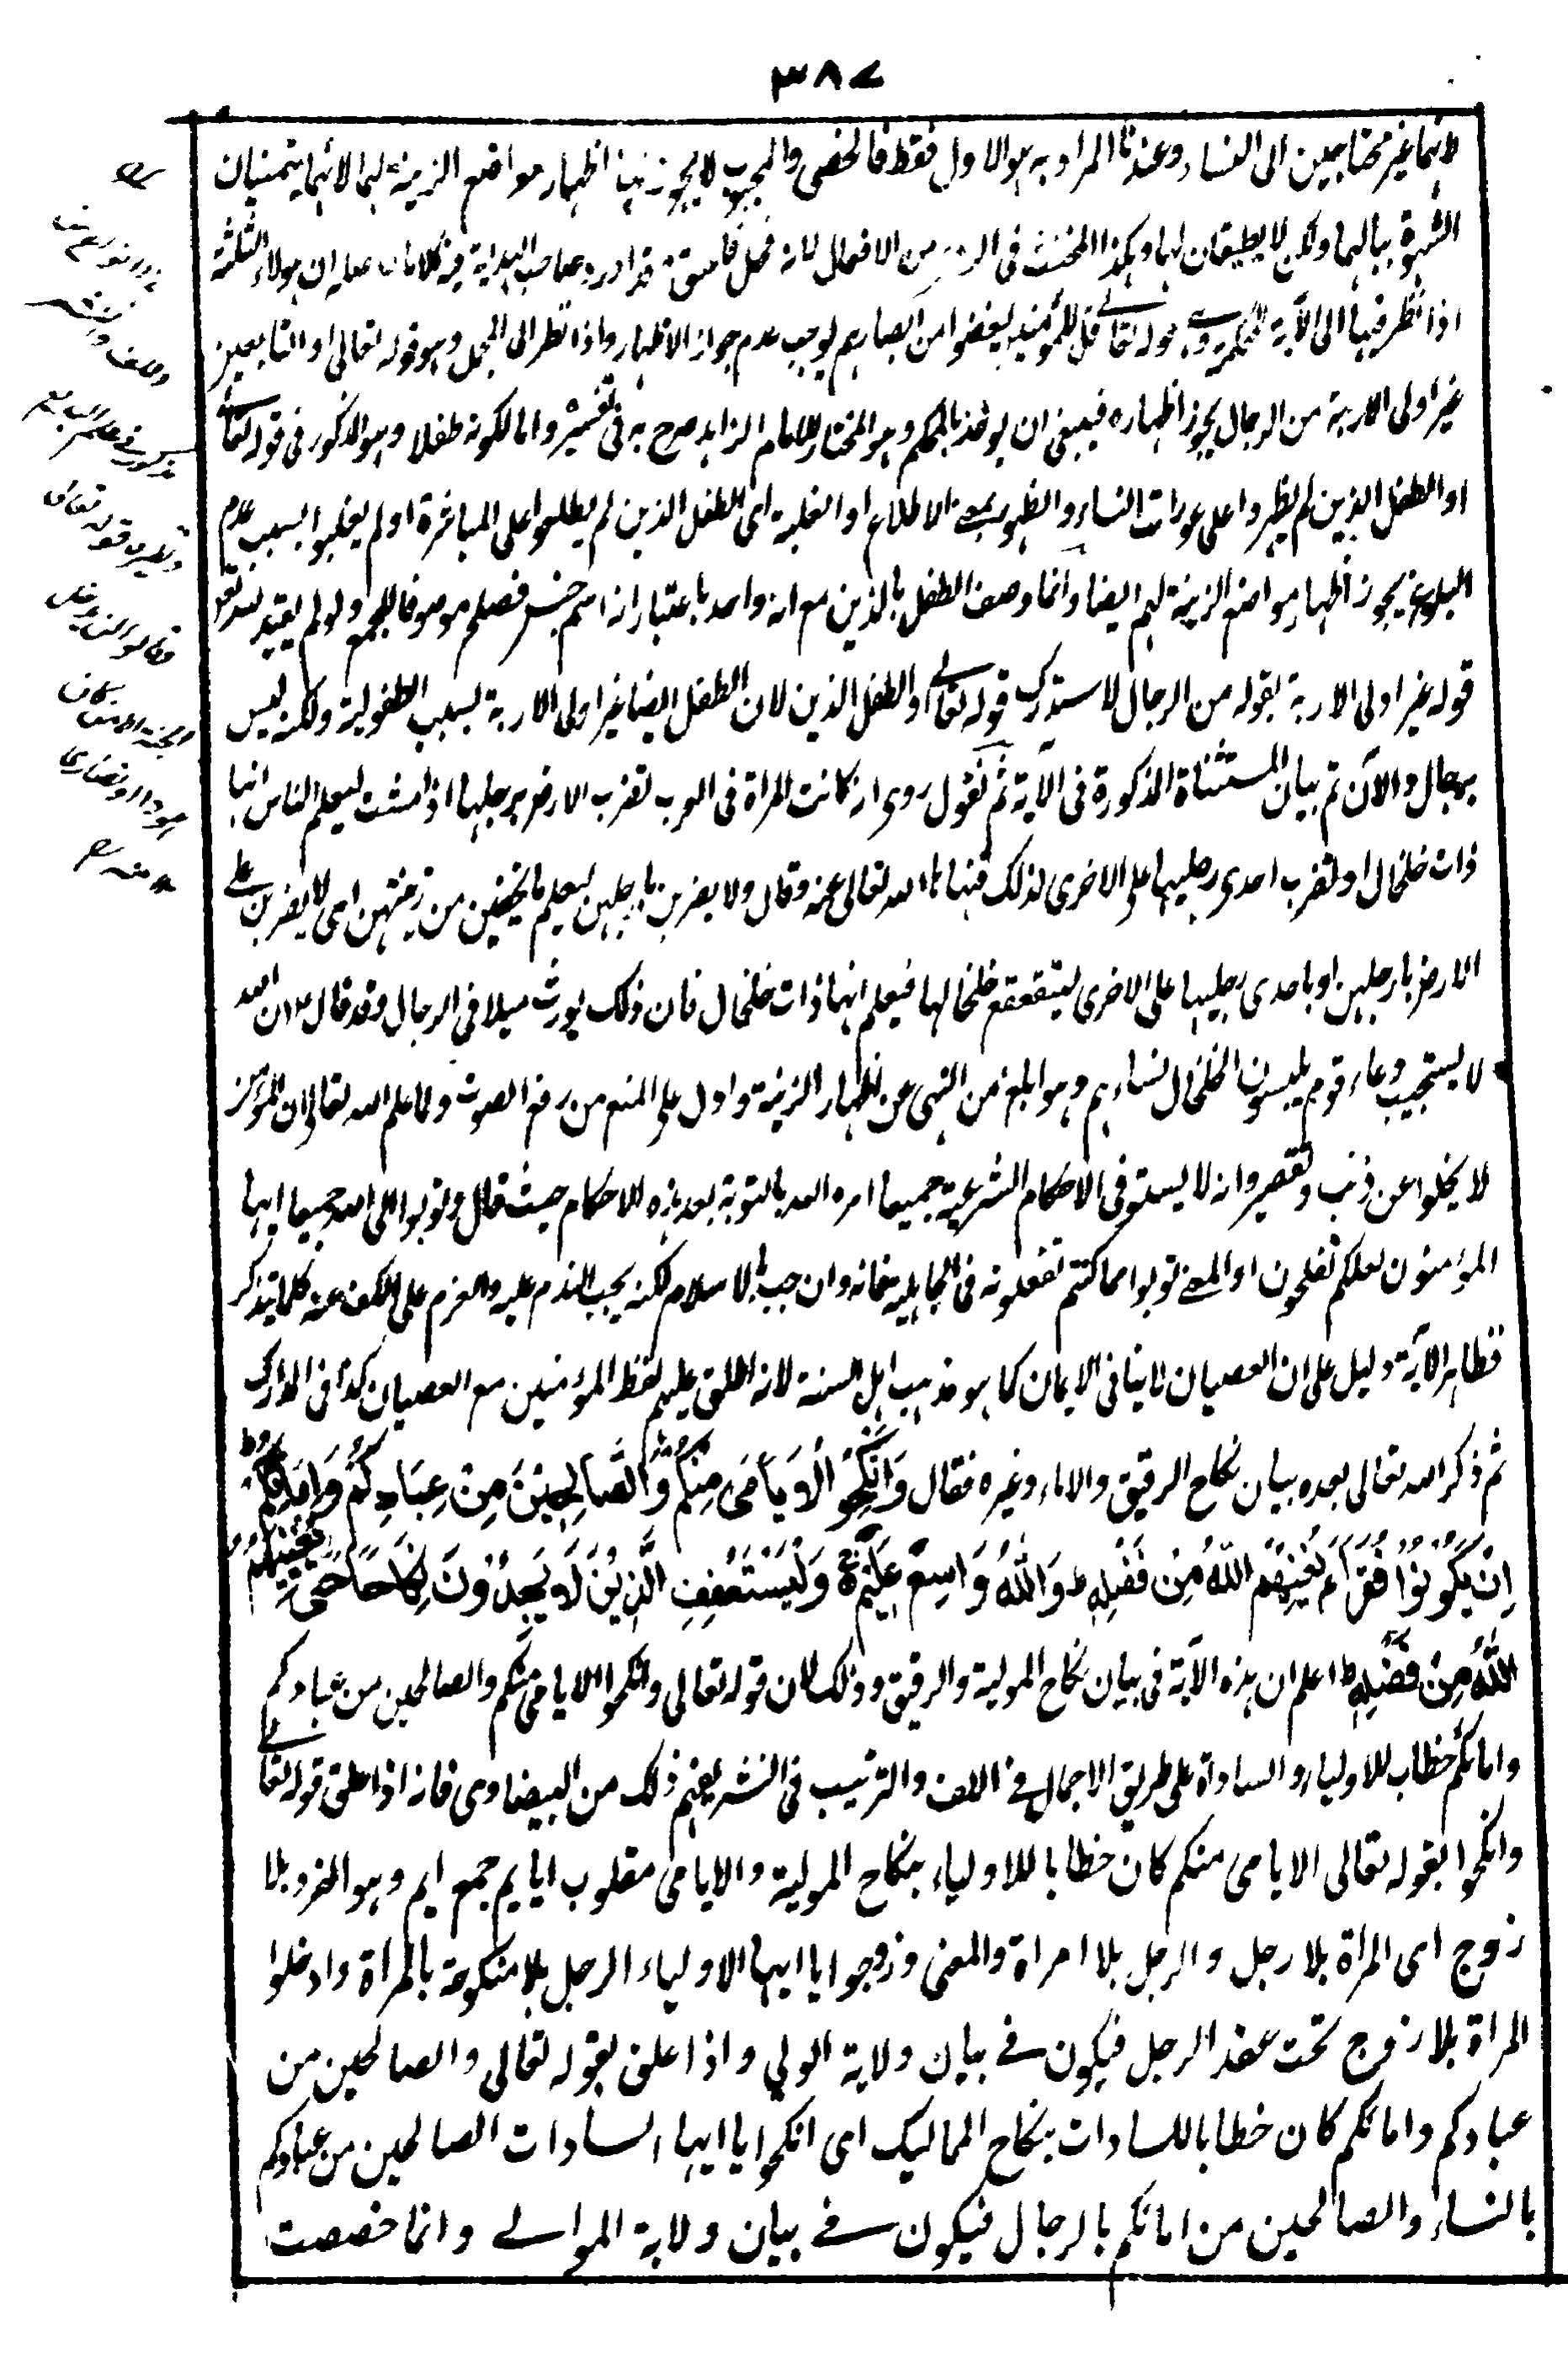 ٣٨٧
لانهما غير محتاجين الى النساء وعندنا المراد به هو الاول فقط فالخصى والمجبوب لا يجوز فيها اظهار مواضع الزينة لهما لانهما يتمنيان
الشهوة ببالهما ولكن لا يطيقان لها وهكذا المخنث فى من الافعال لانه فحل فاسق قد اورد صاحب الهداية فيه كلاما ان هولاء الثلثة
اذا نظر فيها الى الآية المحكمة وهى قوله تعالى قل للمؤمنين يغضوا من ابصارهم يوجب عدم جواز الاظهار واذا نظر الى المجمل وهو قوله تعالى او التابعين
غير اولى الاربة من الرجال يجوز اظهاره فينبغى ان يوخذ بالمحكم وهو المختار للامام الزاهد صرح به فى تفسيره واما لكونه طفلا وهو المذكور فى قوله تعالى
او الطفل الذين لم يظهروا على عورات النساء والظهور بمعنى الاطلاع او الغلبة اى الطفل الذين لم يطلعوا على المباشرة او لم يغلبوا بسبب عدم
البلوغ يجوز اظهار مواضع الزينة لهم ايضا وانما وصف الطفل بالذين مع انه واحد باعتبار انه اسم جنس فصلح موصوفا للجمع ولو لم يقيد الله تعالى
قوله غير اولى الاربة بقوله من الرجال لاستدرك قوله تعالى او الطفل الذين لان الطفل ايضا غير اولى الاربة بسبب الطفولية ولكنه ليس
برجال والآن تم بيان المستثناة المذكورة فى الآية ثم نقول روى انه كانت المراة فى العرب تضرب الارض برجليها اذا مشت ليعلم الناس انها
ذات خلخال او تضرب احدى رجليها على الاخرى لذلك فنهاها الله تعالى عنه وقال ولا يضربن بارجلهن ليعلم ما يخفين من زينتهن اى لا يضربن على
الارض بارجلهن او باحدى رجليها على الاخرى ليتقعقع خلخالها فيعلم انها ذات خلخال فان ذلك يورث ميلا فى الرجال وقد قال ع ان الله
لا يستجيب دعاء قوم يلبسون الخلخال نساءهم وهو ابلغ من النهى عن اظهار الزينة وادل على المنع من رفع الصوت ولما علم الله تعالى ان المؤمن
لا يخلوا عن ذنب وتقصير وانه لا يستوفى الاحكام الشرعية جميعا امره الله بالتوبة بعد هذه الاحكام حيث قال وتوبوا الى الله جميعا ايها
المؤمنون لعلكم تفلحون او المعنى توبوا مما كنتم تفعلونه فى الجاهلية فانه وان جب بالاسلام لكنه يجب الندم عليه والعزم على الكف عنه كلما يتذكر
فظاهر الآية دليل على ان العصيان لا ينافى الايمان كما هو مذهب اهل السنة لانه اطلق عليهم لفظ المؤمنين مع العصيان كذا فى المدارك
ثم ذكر الله تعالى بعده بيان نكاح الرقيق والاماء وغيره فقال وَاَنْكِحُوا الْاَيَامَى مِنْكُمْ وَالصَّالِحِيْنَ مِنْ عِبَادِكُمْ وَاِمَائِكُمْ ط
اِنْ يَكُوْنُوْا فُقَرَاءَ يُغْنِهِمُ اللّٰهُ مِنْ فَضْلِهٖ ط وَاللّٰهُ وَاسِعٌ عَلِيْمٌ وَلْيَسْتَعْفِفِ الَّذِيْنَ لَا يَجِدُوْنَ نِكَاحًا حَتّٰى يُغْنِيَهُمُ
اللّٰهُ مِنْ فَضْلِهٖ ط اعلم ان هذه الآية فى بيان نكاح المولية والرقيق وذلك لان قوله تعالى وانكحوا الايامى منكم والصالحين من عبادكم
وامائكم خطاب للاولياء والساداة على طريق الاجمال فى اللف والترتيب فى النشر يفهم ذلك من البيضاوى فانه اذا علق قوله تعالى
وانكحوا بقوله تعالى الايامى منكم كان خطابا للاولياء بنكاح المولية والايامى مقلوب ايايم جمع ايم وهو الفرد بلا
زوج اى المراة بلا رجل والرجل بلا امراة والمعنى وزوجوا يا ايها الاولياء الرجل بلا منكوحة بالمراة وادخلوا
المراة بلا زوج تحت عقد الرجل فيكون فى بيان ولاية الولى واذا علق بقوله تعالى والصالحين من
عبادكم وامائكم كان خطابا للسادات بنكاح المماليك اى انكحوا يا ايها السادات الصالحين من عبادكم
بالنساء والصالحين من امائكم بالرجال فيكون فى بيان ولاية الموالى وانما خصصت
واللف والنشر
وتقديره قوله تعالى
وقالوا لن يدخل
الجنة الا من كان
هودا او نصارى
منه